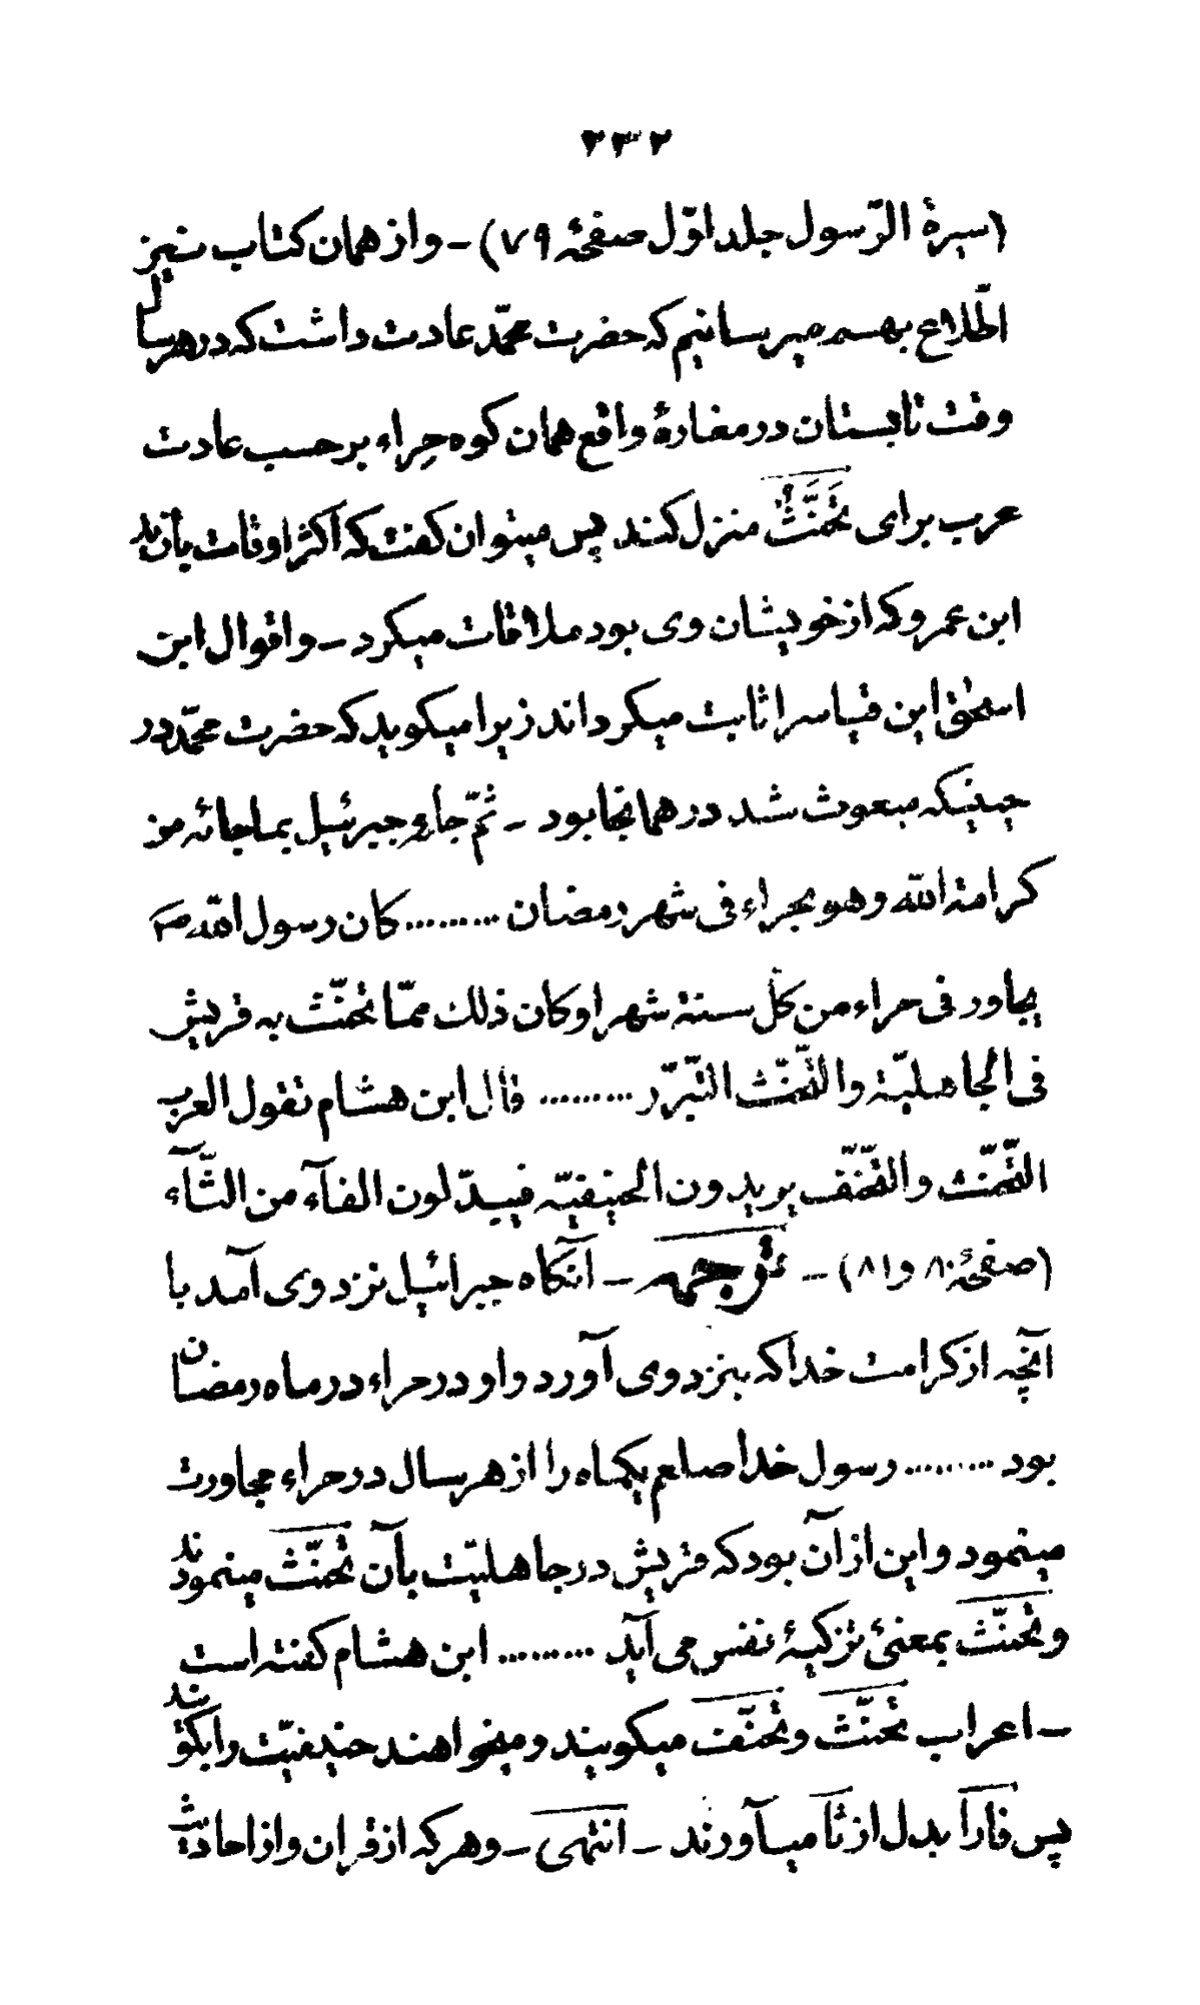 ۲۳۲
(سیرة الرّسول جلد اوّل صفحهٔ ۷۹) - و از همان کتاب نیز
اطّلاع بهم میرسانیم که حضرت محمّد عادت داشت که در هر سال
وقت تابستان در مغارهٔ واقع همان کوه حِراء بر حسب عادت
عرب برای تَحَنُّث منزل کند پس میتوان گفت که اکثر اوقات بآن زید
ابن عمرو که از خویشان وی بود ملاقات میکرد - و اقوال ابن
اسحٰق این قیاس را ثابت میگرداند زیرا میگوید که حضرت محمّد در
حینیکه مبعوث شد در همانجا بود - ثمّ جاءِ جبرئیل بما جائه من
کرامة الله وهو بحراء فی شهر رمضان ......... کان رسول الله ص
یجاور فی حراء من کلّ سنة شهراً وکان ذلک ممّا تحنّث به قریش
فی الجاهلیّة والتّحنّث التبرّر ......... قال ابن هشام تقول العرب
التّحنّث والتّحنّف یریدون الحنیفیّه فیبدّلون الفآء من الثّآء
(صفحهٔ ۸۰ و ۸۱) - ترجمه - آنگاه جبرائیل نزد وی آمد با
آنچه از کرامت خدا که بنزد وی آورد و او در حراء در ماه رمضان
بود ......... رسول خدا صلعم یکماه را از هر سال در حراء مجاورت
مینمود و این از آن بود که قریش در جاهلیّت بآن تحنّث مینمودند
و تحنّث بمعنیٔ تزکیهٔ نفس می آید ......... ابن هشام گفته است
- اعراب تحنّث و تحنّف میگویند و میخواهند حنیفیّت را بگویند
پس فا را بدل از ثا میآورند - انتهی - و هر که از قران و از احادیث